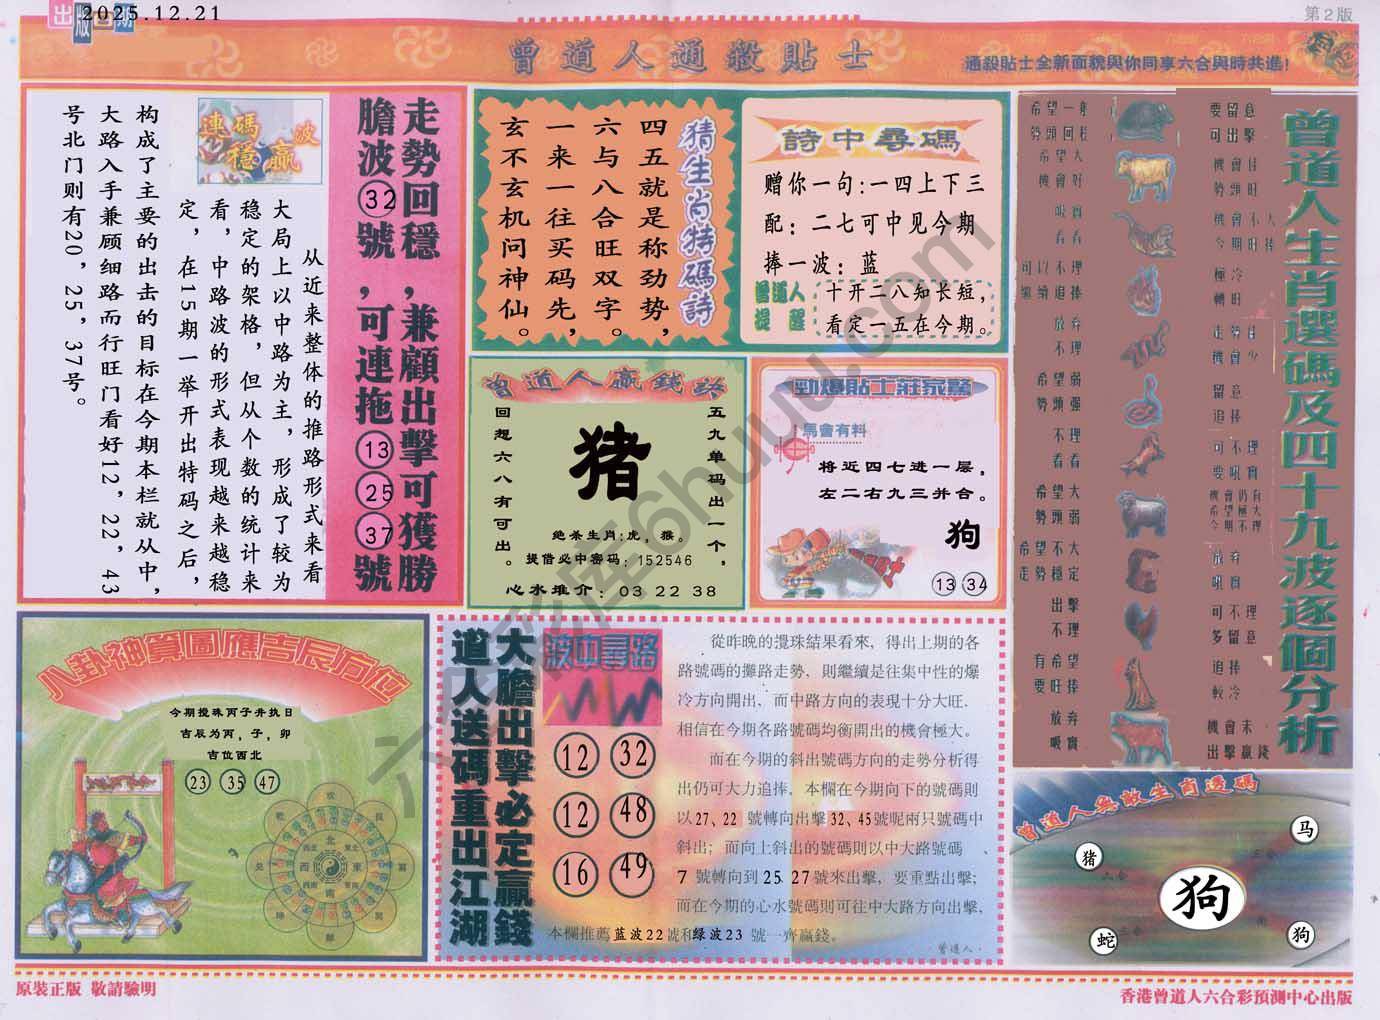 出版日期
2025.12.21
第2版
曾道人通殺貼士
通殺貼士全新面貌與你同享六合與時共進!
走勢回穩,兼顧出擊可獲勝
膽波32號,可連拖13 25 37號
連碼波
穩贏
从近来整体的推路形式来看
大局上以中路为主,形成了较为
稳定的架格,但从个数的统计来
看,中路波的形式表现越来越稳
定,在15期一举开出特码之后,
构成了主要的出击的目标在今期本栏就从中,
大路入手兼顾细路而行旺门看好12,22,43
号北门则有20,25,37号。
猜生肖特碼詩
四五就是称劲势,
六与八合旺双字。
一来一往买码先,
玄不玄机问神仙。
詩中尋碼
赠你一句:一四上下三
配:二七可中见今期
捧一波:蓝
曾道人
提醒
十开二八知长短,
看定一五在今期。
曾道人贏錢詩
五九单码出一个,
猪
回想六八有可出。
绝杀生肖:虎,猴。
提借必中密码:152546
心水推介:03 22 38
勁爆貼士莊家驚
馬會有料
将近四七进一层,
左二右九三并合。
狗
13 34
曾道人生肖選碼及四十九波逐個分析
希望一般
勢頭回穩
要留意
可出擊
希望大
機會好
機會佳
勢頭旺
吸實
看看
機會不大
今期旺捧
可以不理
繼續追捧
極冷
轉旺
放弃
不理
走勢佳
機會少
希望弱
勢頭强
留意
追捧
不理
看看
可不理
要吼實
希望大
勢頭弱
機會仍有
希望極大
今期不理
希望不大
走勢穩定
放弃
吼實
出擊
不理
可不理
多留意
有希望
要旺捧
追捧
較冷
放弃
吸實
機會未
出擊贏錢
八卦神算圖應吉辰方位
今期搅珠丙子井执日
吉辰为丙,子,卯
吉位西北
23 35 47
大膽出擊必定贏錢
道人送碼重出江湖
波中尋路
12 32
12 48
16 49
從昨晚的攪珠結果看來,得出上期的各
路號碼的攤路走勢,則繼續是往集中性的爆
冷方向開出,而中路方向的表現十分大旺.
相信在今期各路號碼均衡開出的機會極大。
而在今期的斜出號碼方向的走勢分析得
出仍可大力追捧,本欄在今期向下的號碼則
以27、22 號轉向出擊32、45號呢兩只號碼中
斜出;而向上斜出的號碼則以中大路號碼、
7 號轉向到25 27號來出擊,要重點出擊;
而在今期的心水號碼則可往中大路方向出擊,
本欄推薦蓝波22號和绿波23 號一齊贏錢。
曾道人.
曾道人無敵生肖透碼
马
猪
狗
蛇
狗
原裝正版 敬請驗明
香港曾道人六合彩預測中心出版